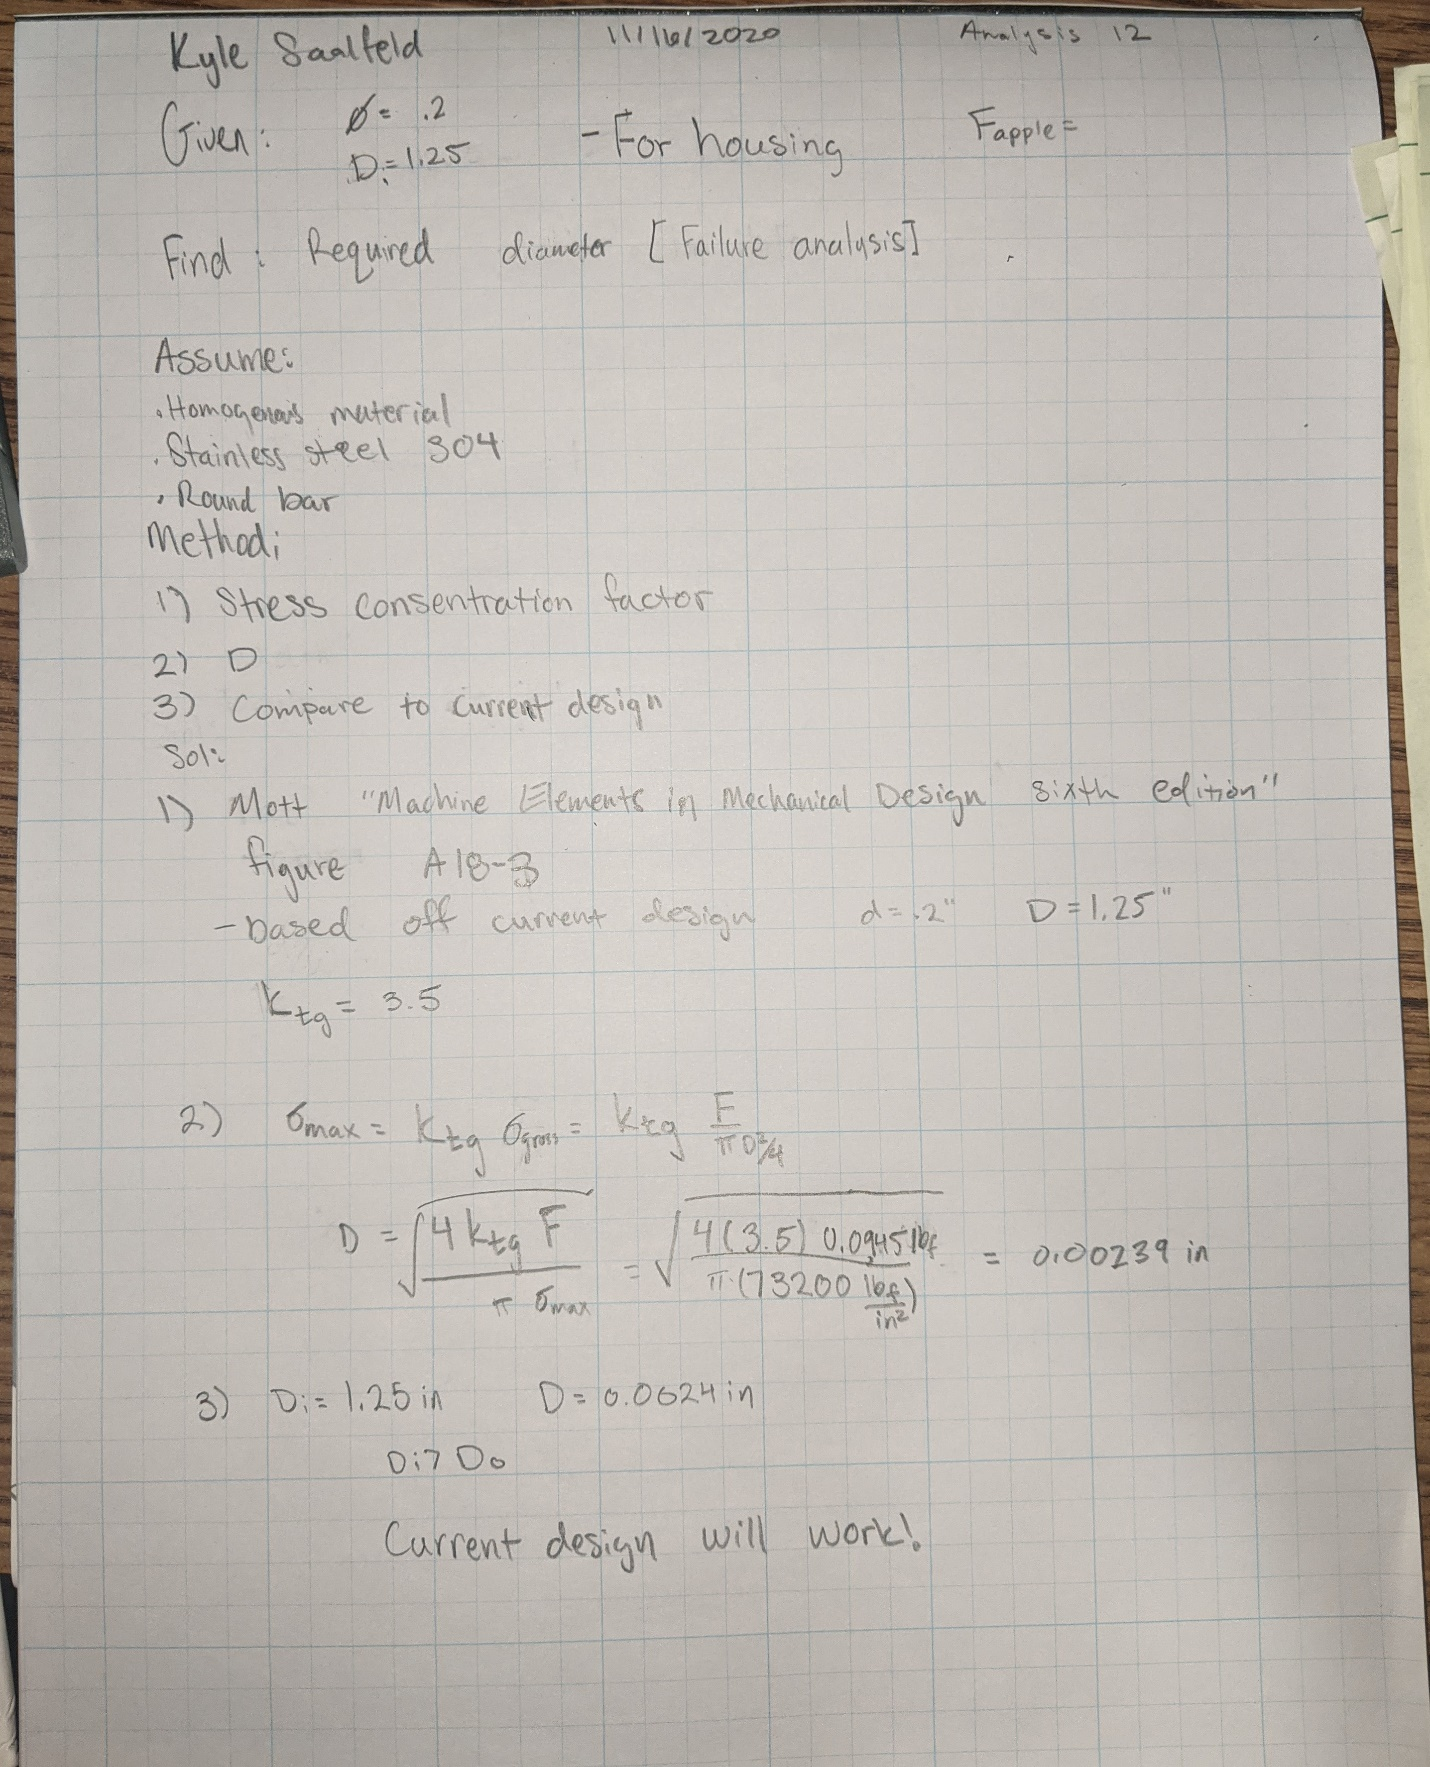 Kyle Saalfeld 11/16/2020 Analysis 12
Given: Ø = .2 - For housing Fapple =
Di = 1.25
Find: Required diameter [Failure analysis]
Assume:
• Homogenous material
• Stainless steel 304
• Round bar
Method:
1) Stress consentration factor
2) D
3) Compare to current design
Sol:
1) Mott "Machine Elements in Mechanical Design sixth edition"
figure A18-3
- based off current design d = .2" D = 1.25"
Ktg = 3.5
2) σmax = Ktg σgross = Ktg F / (πD²/4)
D = √(4 Ktg F / (π σmax)) = √(4(3.5) 0.0945 lbf / (π(73200 lbf/in²))) = 0.00239 in
3) Di = 1.25 in D = 0.0024 in
Di > Do
Current design will work!